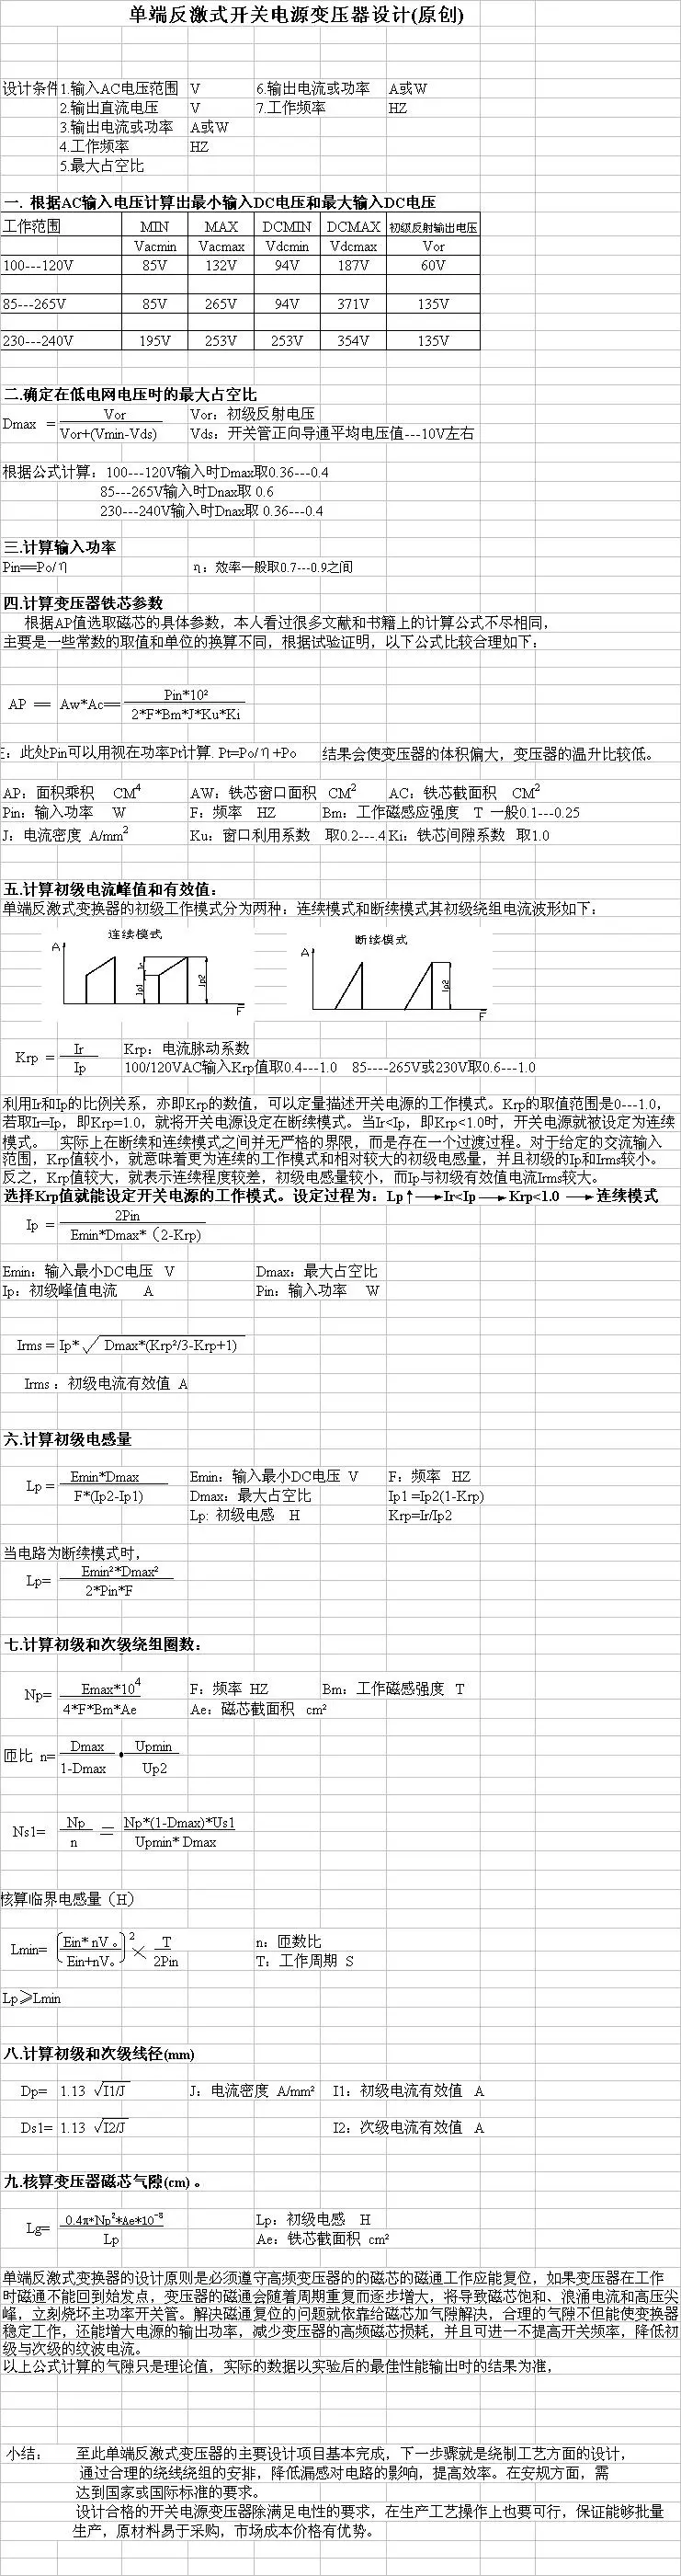 单端反激式开关电源变压器设计(原创)
设计条件 1.输入AC电压范围 V 6.输出电流或功率 A或W
2.输出直流电压 V 7.工作频率 HZ
3.输出电流或功率 A或W
4.工作频率 HZ
5.最大占空比
一. 根据AC输入电压计算出最小输入DC电压和最大输入DC电压
工作范围 MIN MAX DCMIN DCMAX 初级反射输出电压
Vacmin Vacmax Vdcmin Vdcmax Vor
100---120V 85V 132V 94V 187V 60V
85---265V 85V 265V 94V 371V 135V
230---240V 195V 253V 253V 354V 135V
二.确定在低电网电压时的最大占空比
Dmax = Vor Vor：初级反射电压
Vor+(Vmin-Vds) Vds：开关管正向导通平均电压值---10V左右
根据公式计算：100---120V输入时Dmax取0.36---0.4
85---265V输入时Dnax取 0.6
230---240V输入时Dnax取 0.36---0.4
三.计算输入功率
Pin==Po/η η：效率一般取0.7---0.9之间
四.计算变压器铁芯参数
根据AP值选取磁芯的具体参数，本人看过很多文献和书籍上的计算公式不尽相同，
主要是一些常数的取值和单位的换算不同，根据试验证明，以下公式比较合理如下：
AP == Aw*Ac== Pin*10²
2*F*Bm*J*Ku*Ki
：此处Pin可以用视在功率Pt计算. Pt=Po/η+Po 结果会使变压器的体积偏大，变压器的温升比较低。
AP：面积乘积 CM⁴ AW：铁芯窗口面积 CM² AC：铁芯截面积 CM²
Pin：输入功率 W F：频率 HZ Bm：工作磁感应强度 T 一般0.1---0.25
J：电流密度 A/mm² Ku：窗口利用系数 取0.2---.4 Ki：铁芯间隙系数 取1.0
五.计算初级电流峰值和有效值：
单端反激式变换器的初级工作模式分为两种：连续模式和断续模式其初级绕组电流波形如下：
连续模式 断续模式
A Ir Ip1 Ip2 F
A Ip2 F
Krp = Ir Krp：电流脉动系数
Ip 100/120VAC输入Krp值取0.4---1.0 85----265V或230V取0.6---1.0
利用Ir和Ip的比例关系，亦即Krp的数值，可以定量描述开关电源的工作模式。Krp的取值范围是0---1.0，
若取Ir=Ip，即Krp=1.0，就将开关电源设定在断续模式。当Ir<Ip，即Krp<1.0时，开关电源就被设定为连续
模式。 实际上在断续和连续模式之间并无严格的界限，而是存在一个过渡过程。对于给定的交流输入
范围，Krp值较小，就意味着更为连续的工作模式和相对较大的初级电感量，并且初级的Ip和Irms较小。
反之，Krp值较大，就表示连续程度较差，初级电感量较小，而Ip与初级有效值电流Irms较大。
选择Krp值就能设定开关电源的工作模式。设定过程为：Lp↑→Ir<Ip→Krp<1.0 →连续模式
Ip = 2Pin
Emin*Dmax*（2-Krp)
Emin：输入最小DC电压 V Dmax：最大占空比
Ip：初级峰值电流 A Pin：输入功率 W
Irms = Ip*√Dmax*(Krp²/3-Krp+1)
Irms：初级电流有效值 A
六.计算初级电感量
Lp = Emin*Dmax Emin：输入最小DC电压 V F：频率 HZ
F*(Ip2-Ip1) Dmax：最大占空比 Ip1 =Ip2(1-Krp)
Lp: 初级电感 H Krp=Ir/Ip2
当电路为断续模式时，
Lp= Emin²*Dmax²
2*Pin*F
七.计算初级和次级绕组圈数：
Np= Emax*10⁴ F：频率 HZ Bm：工作磁感强度 T
4*F*Bm*Ae Ae：磁芯截面积 cm²
匝比 n= Dmax • Upmin
1-Dmax Up2
Ns1= Np = Np*(1-Dmax)*Us1
n Upmin* Dmax
核算临界电感量（H）
Lmin= (Ein* nV。)² × T n：匝数比
Ein+nV。 2Pin T：工作周期 S
Lp≥Lmin
八.计算初级和次级线径(mm)
Dp= 1.13 √I1/J J：电流密度 A/mm² I1：初级电流有效值 A
Ds1= 1.13 √I2/J I2：次级电流有效值 A
九.核算变压器磁芯气隙(cm) 。
Lg= 0.4π*Np²*Ae*10⁻⁸ Lp：初级电感 H
Lp Ae：铁芯截面积 cm²
单端反激式变换器的设计原则是必须遵守高频变压器的的磁芯的磁通工作应能复位，如果变压器在工作
时磁通不能回到始发点，变压器的磁通会随着周期重复而逐步增大，将导致磁芯饱和、浪涌电流和高压尖
峰，立刻烧坏主功率开关管。解决磁通复位的问题就依靠给磁芯加气隙解决，合理的气隙不但能使变换器
稳定工作，还能增大电源的输出功率，减少变压器的高频磁芯损耗，并且可进一不提高开关频率，降低初
级与次级的纹波电流。
以上公式计算的气隙只是理论值，实际的数据以实验后的最佳性能输出时的结果为准，
小结： 至此单端反激式变压器的主要设计项目基本完成，下一步骤就是绕制工艺方面的设计，
通过合理的绕线绕组的安排，降低漏感对电路的影响，提高效率。在安规方面，需
达到国家或国际标准的要求。
设计合格的开关电源变压器除满足电性的要求，在生产工艺操作上也要可行，保证能够批量
生产，原材料易于采购，市场成本价格有优势。